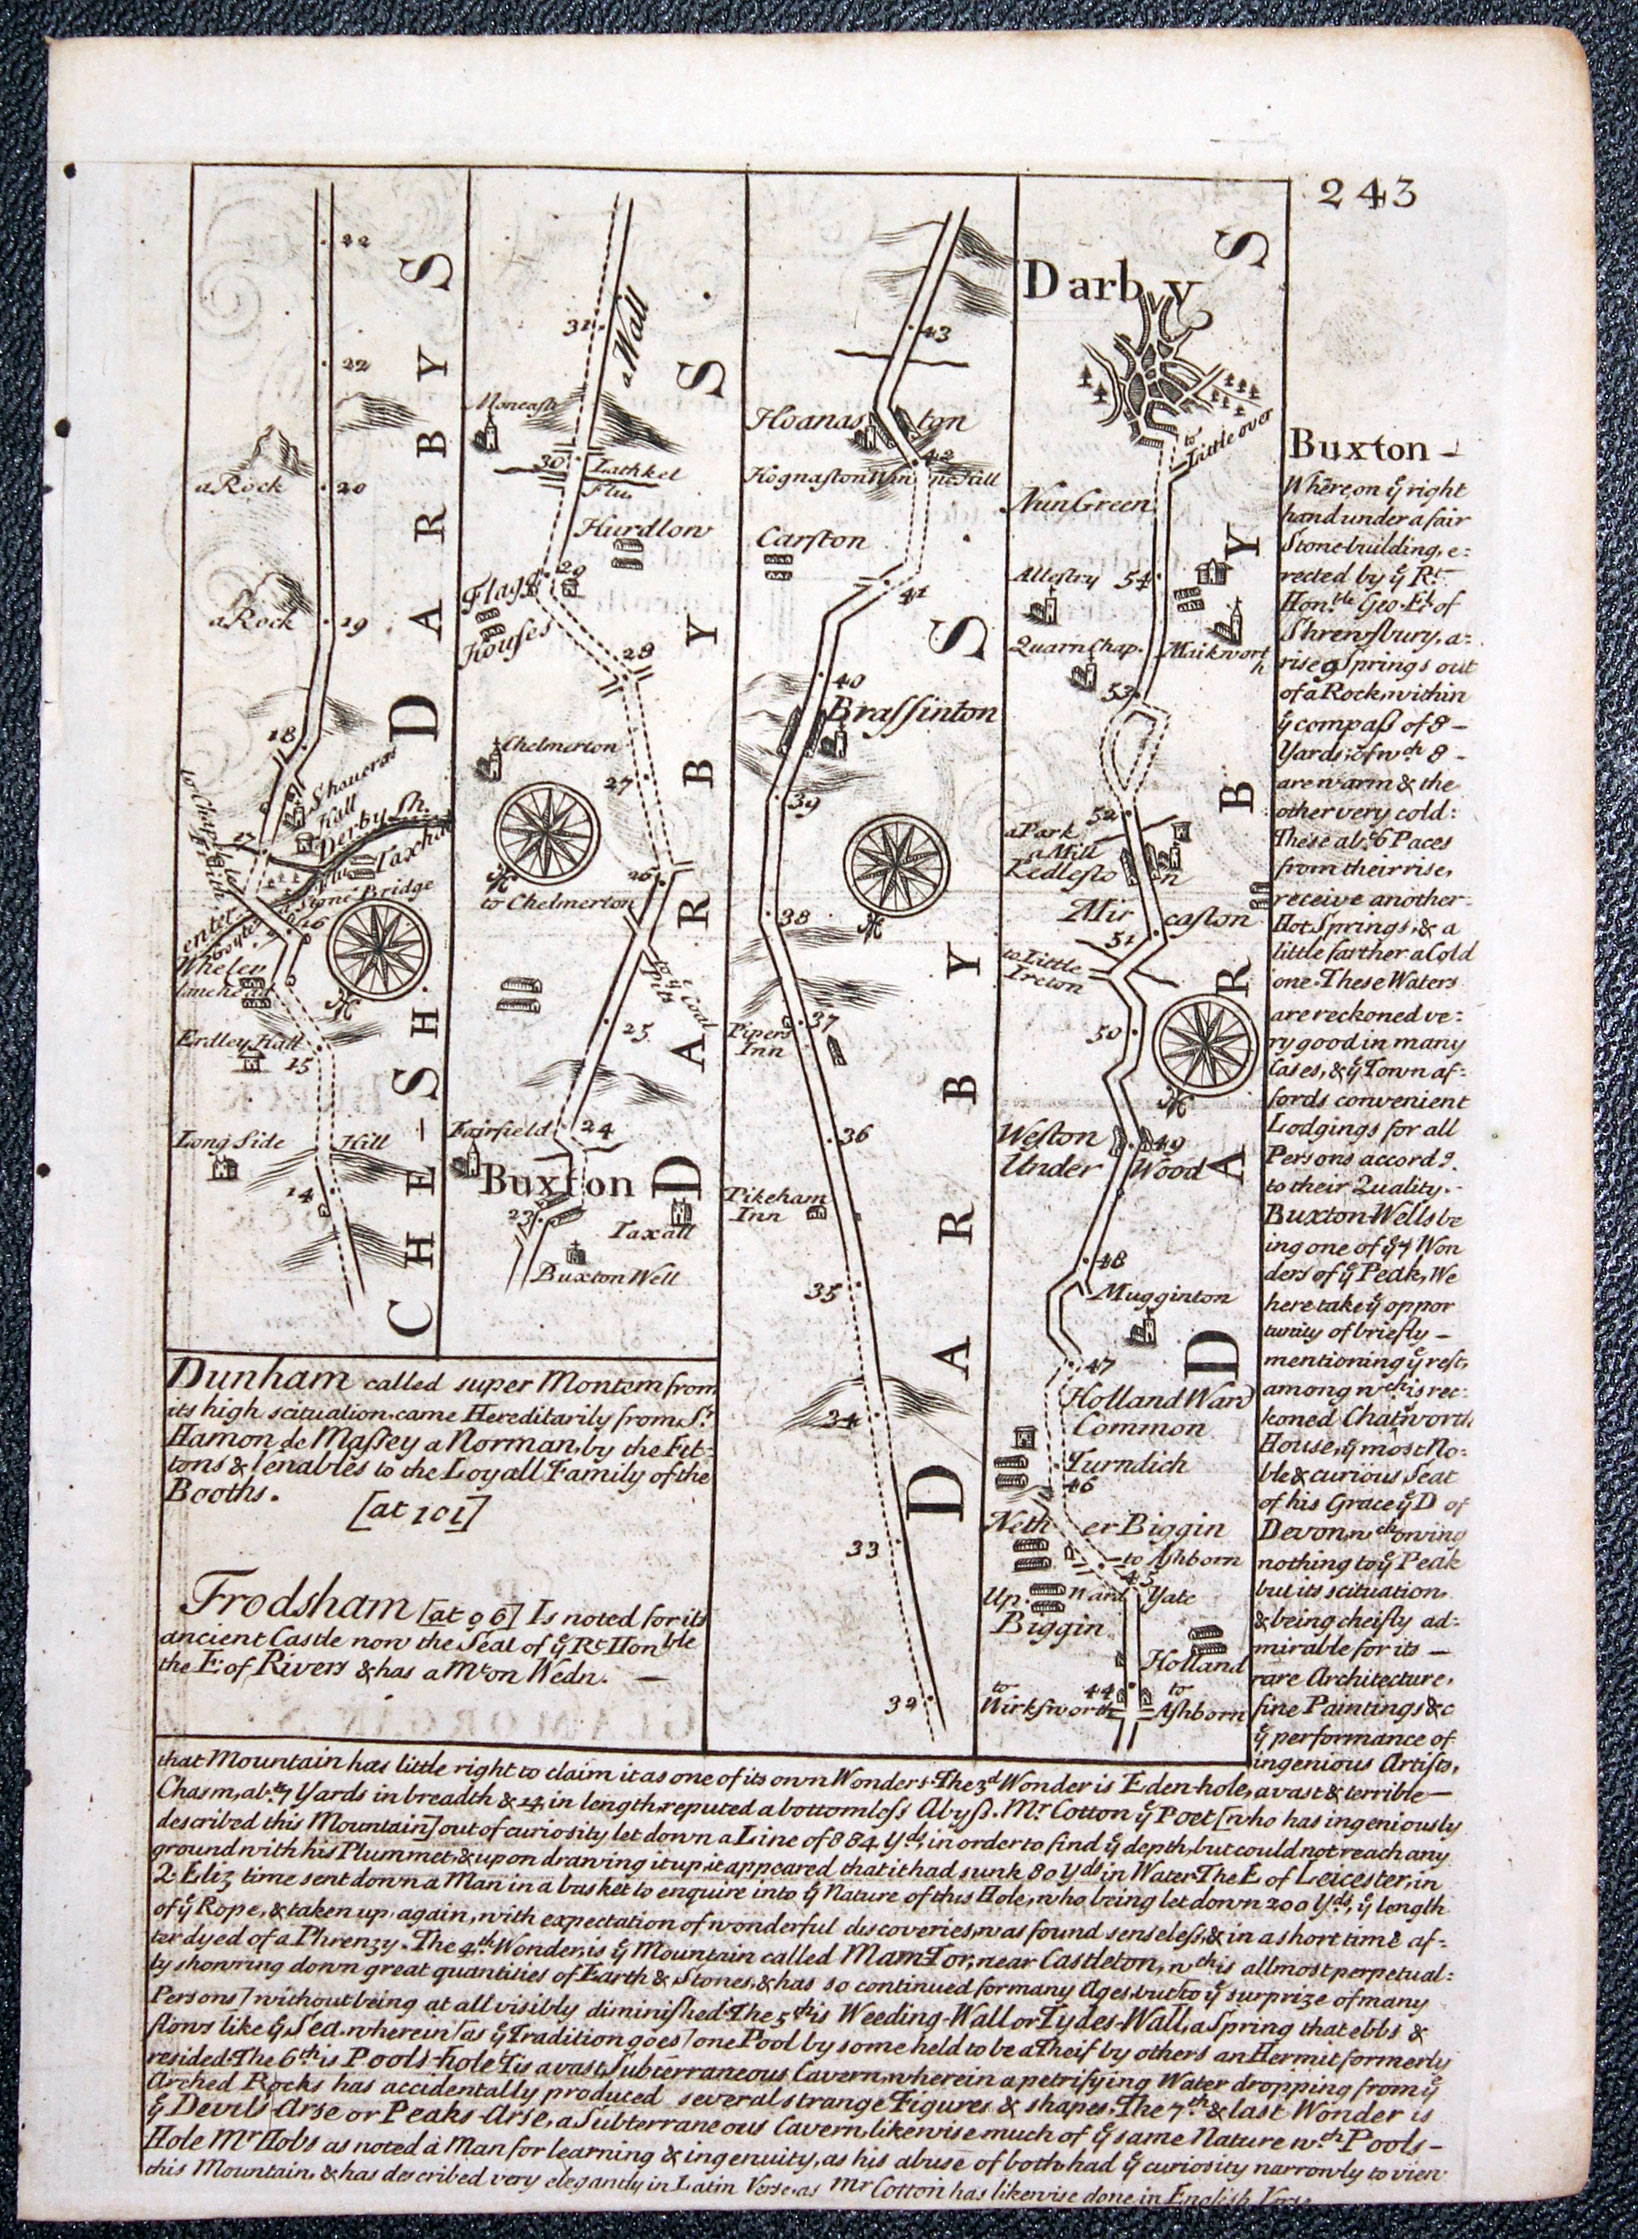 243
22
22
a Rock
20
a Rock
19
18
Shaueros
Hall
17
Derby Sh.
Taxhal
Flu.
Stone Bridge
to Chapel
in Frith
enter
16
Wheley
lane head
Erdley Hall
15
Long Side Hill
14
CHE-SH.
DARBYS
31
a Wall
Moncash
30
Lathkel
Flu.
Hurdlow
Flagg
29
Houses
28
Chelmerton
27
26
to Chelmerton
to ẏ Coal
Pits
25
Fairfield
24
Buxton
23
Taxall
Buxton Well
DARBYS.
43
Hoanas ton
42
Hognaston Win ne Hill
Carston
41
40
Brassinton
39
38
Pipers
Inn
37
36
Pikeham
Inn
35
34
33
32
DARBYS
Darby
to
Little over
Nun Green
Allestry
54
Quarn Chap.
Maikwort
h
53
52
a Park
a Mill
Kedlesto n
Mir caston
51
to Little
Ireton
50
Weston 49
Under Wood
48
Mugginton
47
Holland Ward
Common
Turndich
46
Neth er Biggin
to Ashborn
45
Up. ward Yate
Biggin
Holland
44
to
Wirksworth
to
Ashborn
DARBYS
Dunham called super Montem from
its high scituation, came Hereditarily from Sr.
Hamon de Massey a Norman, by the Fit=
tons & Venables to the Loyall Family of the
Booths.
[at 101]
Frodsham [at 96] Is noted for its
ancient Castle now the Seat of ẏ Rt Honble
the E. of Rivers & has a Mt on Wedn. —
Buxton –
Where, on ẏ right
hand under a fair
Stone building, e=
rected by ẏ Rt.
Honble Geo. El of
Shrewsbury, a=
rise 9 Springs out
of a Rock, within
ẏ compass of 8 –
Yards; of wch 8 –
are warm & the
other very cold:
These abt 6 Paces
from their rise,
receive another
Hot Springs, & a
little farther a Cold
one. These Waters
are reckoned ve=
ry good in many
Cases, & ẏ Town af=
fords convenient
Lodgings for all
Persons accordg.
to their Quality. –
Buxton Wells be
ing one of ẏ 7 Won
ders of ẏ Peak, We
here take ẏ oppor
tunity of briefly –
mentioning ẏ rest,
among wch is rec=
koned Chatworth
House, ẏ most No=
ble & curious Seat
of his Grace ẏ D of
Devon, wch owing
nothing to ẏ Peak
but its scituation
& being cheifly ad=
mirable for its –
rare Architecture,
fine Paintings &c
ẏ performance of
ingenious Artists,
that Mountain has little right to claim it as one of its own Wonders. The 3d Wonder is Eden-hole, a vast & terrible –
Chasm, abt. 7 Yards in breadth & 14 in length, reputed a bottomless Abyss. Mr Cotton ẏ Poet [who has ingeniously
described this Mountain] out of curiosity let down a Line of 884 Yds, in order to find ẏ depth, but could not reach any
ground with his Plummet, & upon drawing it up, it appeared that it had sunk 80 Yds in Water. The E. of Leicester, in
2. Eliz time sent down a Man in a basket to enquire into ẏ Nature of this Hole, who being let down 200 Yds, ẏ length
of ẏ Rope, & taken up again, with expectation of wonderful discoveries, was found senseless, & in a short time af=
ter dyed of a Phrenzy. The 4th Wonder, is ẏ Mountain called Mam-Tor, near Castleton, wch is allmost perpetual=
ly showring down great quantities of Earth & Stones, & has so continued for many Ages, but [to ẏ surprize of many
Persons] without being at all visibly diminished. The 5th is Weeding-Wall or Tydes-Wall, a Spring that ebbs &
flows like ẏ Sea. wherein [as ẏ Tradition goes] one Pool by some held to be a Theif by others an Hermit formerly
resided. The 6th is Pools-hole. Tis a vast Subterraneous Cavern, wherein a petrifying Water dropping from ẏ
Arched Rocks has accidentally produced several strange Figures & shapes. The 7th & last Wonder is
ẏ Devils-Arse or Peaks-Arse, a Subterraneous Cavern, likewise much of ẏ same Nature wth Pools –
Hole Mr Hobs as noted a Man for learning & ingenuity, as his abuse of both, had ẏ curiosity narrowly to view
this Mountain, & has described very elegantly in Latin Verse, as Mr Cotton has likewise done in English Verse